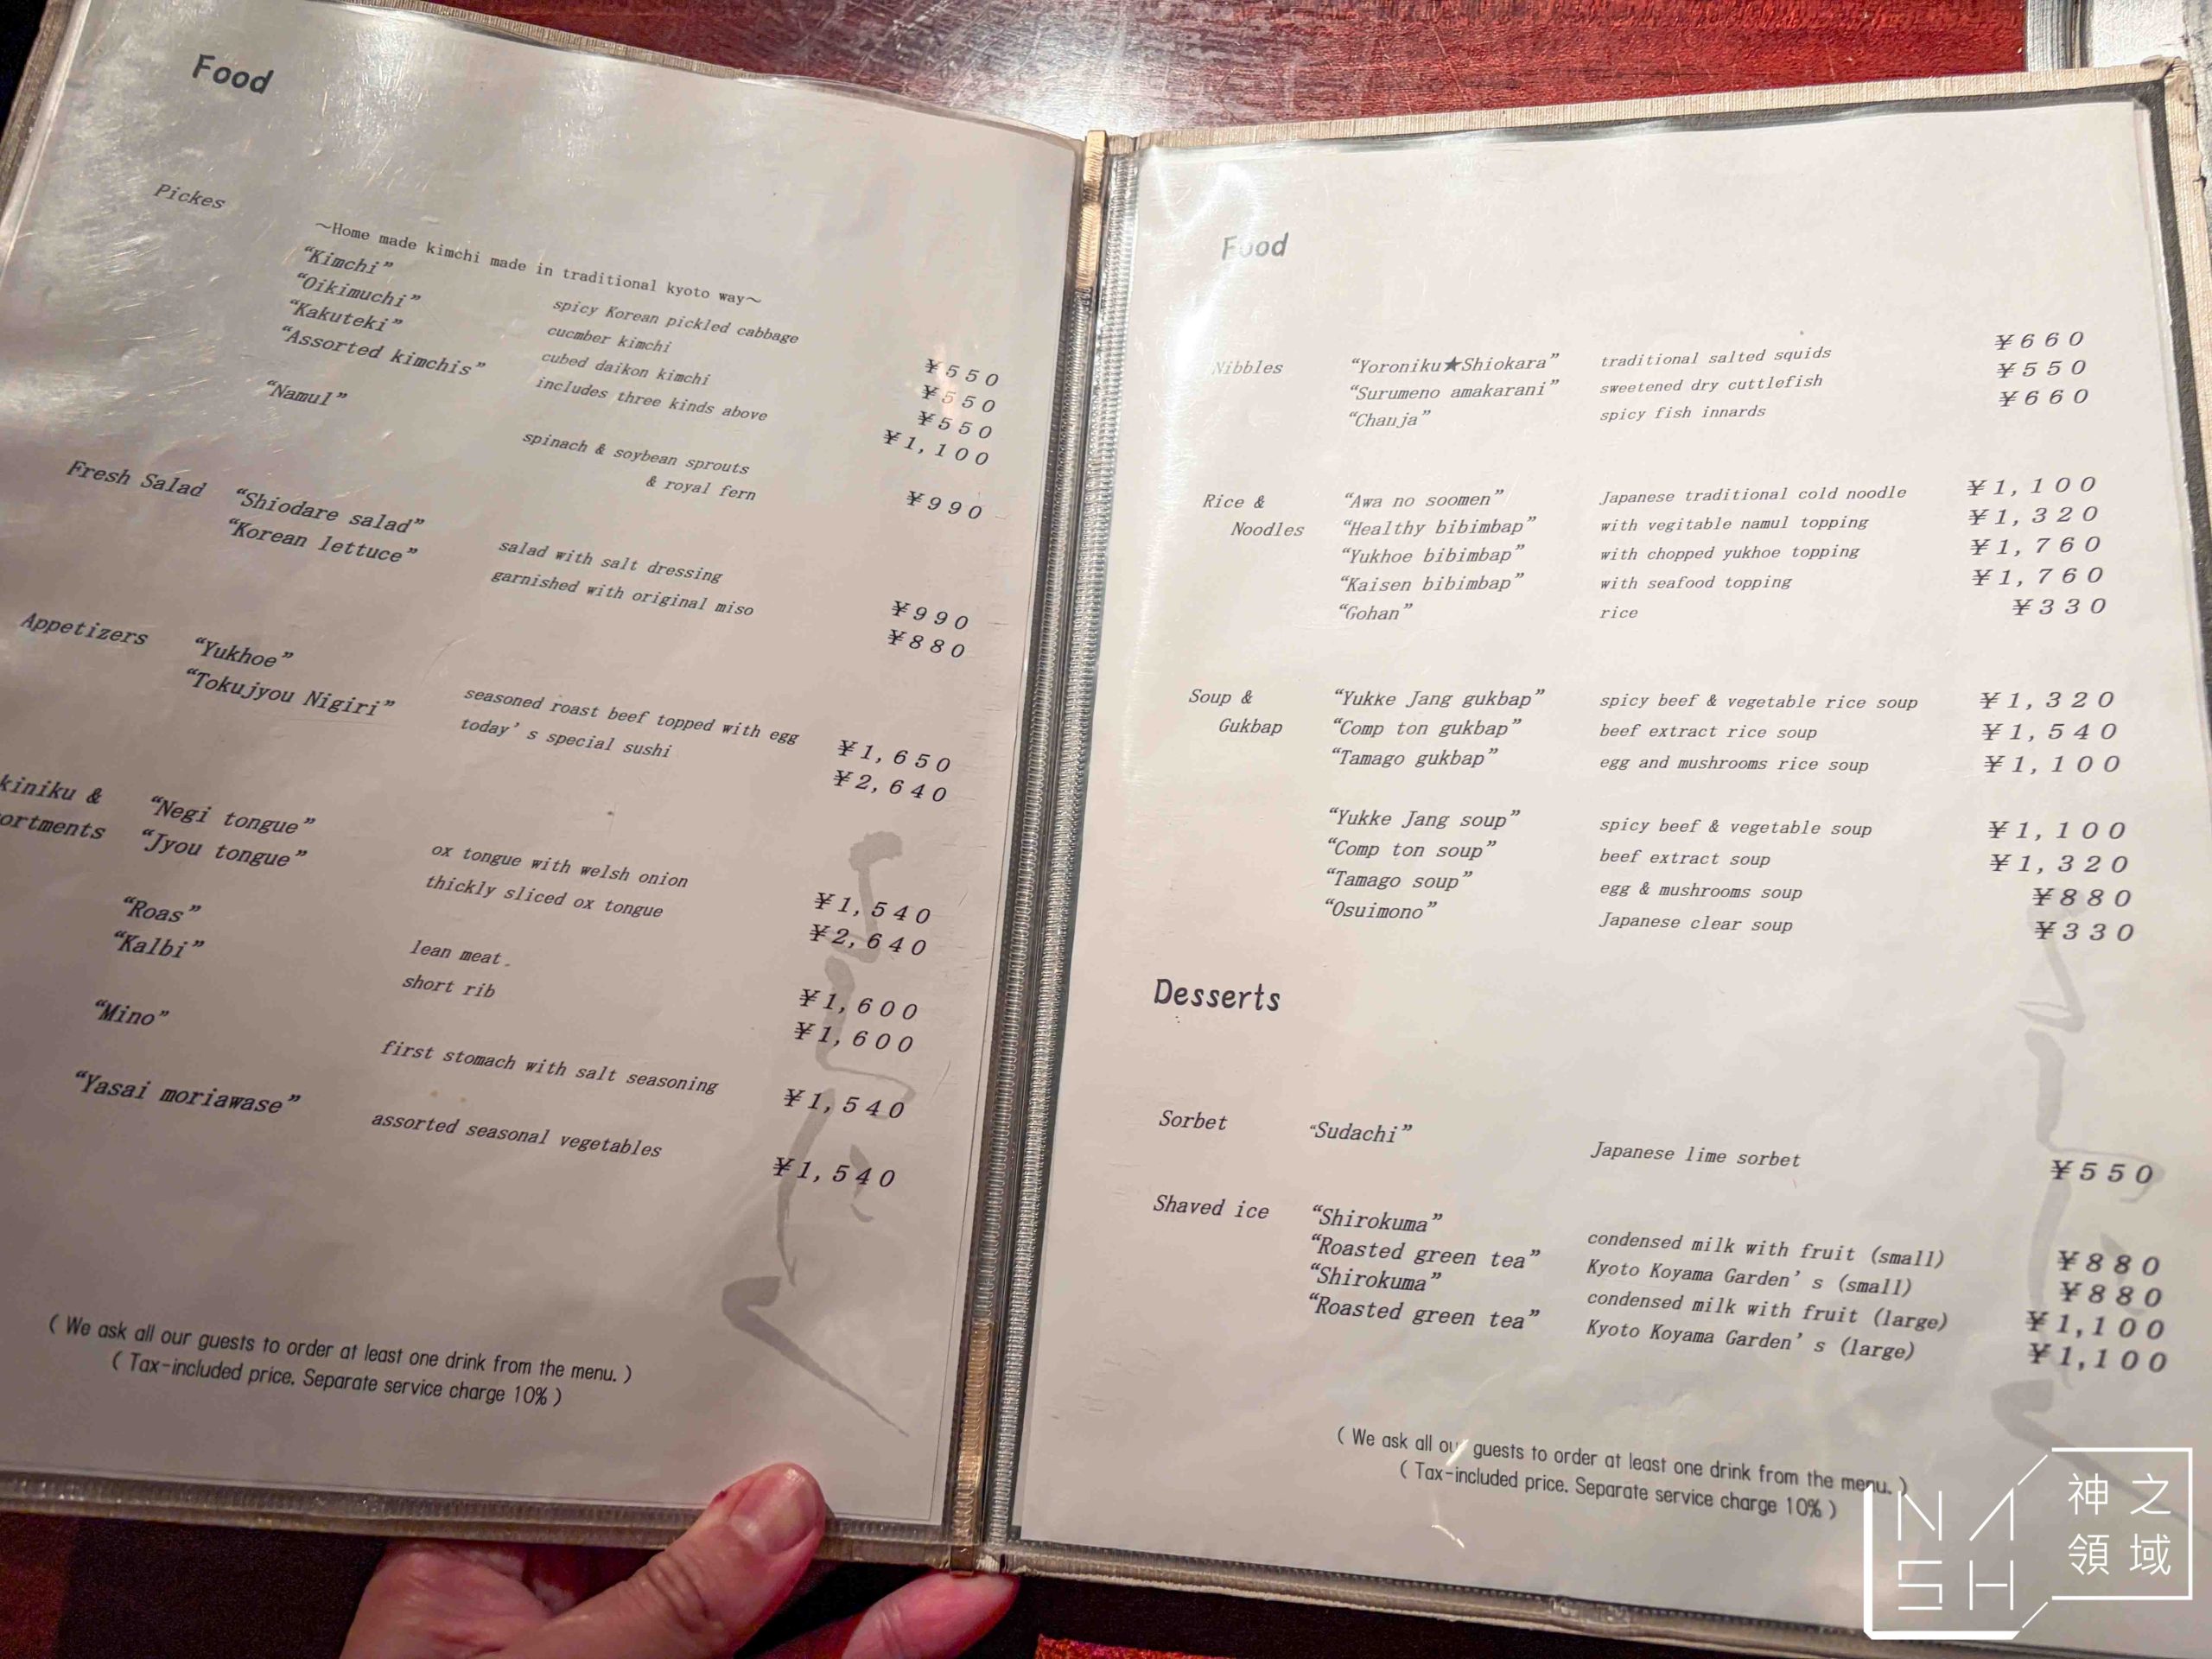 Food
Pickes
～Home made kimchi made in traditional kyoto way～
“Kimchi” spicy Korean pickled cabbage ¥550
“Oikimuchi” cucmber kimchi ¥550
“Kakuteki” cubed daikon kimchi ¥550
“Assorted kimchis” includes three kinds above ¥1,100
“Namul” spinach & soybean sprouts
& royal fern ¥990
Fresh Salad “Shiodare salad” salad with salt dressing ¥990
“Korean lettuce” garnished with original miso ¥880
Appetizers “Yukhoe” seasoned roast beef topped with egg ¥1,650
“Tokujyou Nigiri” today’s special sushi ¥2,640
kiniku & “Negi tongue” ox tongue with welsh onion ¥1,540
ortments “Jyou tongue” thickly sliced ox tongue ¥2,640
“Roas” lean meat ¥1,600
“Kalbi” short rib ¥1,600
“Mino” first stomach with salt seasoning ¥1,540
“Yasai moriawase” assorted seasonal vegetables ¥1,540
( We ask all our guests to order at least one drink from the menu. )
( Tax-included price. Separate service charge 10% )
Food
Nibbles “Yoroniku★Shiokara” traditional salted squids ¥660
“Surumeno amakarani” sweetened dry cuttlefish ¥550
“Chanja” spicy fish innards ¥660
Rice & “Awa no soomen” Japanese traditional cold noodle ¥1,100
Noodles “Healthy bibimbap” with vegitable namul topping ¥1,320
“Yukhoe bibimbap” with chopped yukhoe topping ¥1,760
“Kaisen bibimbap” with seafood topping ¥1,760
“Gohan” rice ¥330
Soup & “Yukke Jang gukbap” spicy beef & vegetable rice soup ¥1,320
Gukbap “Comp ton gukbap” beef extract rice soup ¥1,540
“Tamago gukbap” egg and mushrooms rice soup ¥1,100
“Yukke Jang soup” spicy beef & vegetable soup ¥1,100
“Comp ton soup” beef extract soup ¥1,320
“Tamago soup” egg & mushrooms soup ¥880
“Osuimono” Japanese clear soup ¥330
Desserts
Sorbet “Sudachi” Japanese lime sorbet ¥550
Shaved ice “Shirokuma” condensed milk with fruit (small) ¥880
“Roasted green tea” Kyoto Koyama Garden’s (small) ¥880
“Shirokuma” condensed milk with fruit (large) ¥1,100
“Roasted green tea” Kyoto Koyama Garden’s (large) ¥1,100
( We ask all our guests to order at least one drink from the menu. )
( Tax-included price. Separate service charge 10% )
NASH
神之
領域